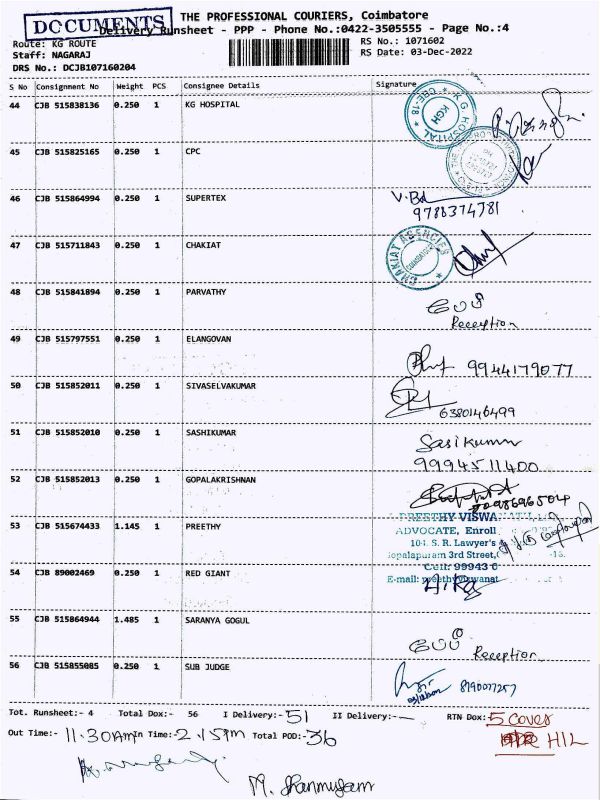 DOCUMENTS
THE PROFESSIONAL COURIERS, Coimbatore
Delivery Runsheet - PPP - Phone No.:0422-3505555 - Page No.:4
Route: KG ROUTE
RS No.: 1071602
Staff: NAGARAJ
RS Date: 03-Dec-2022
DRS No.: DCJB107160204
S No Consignment No Weight PCS Consignee Details Signature
44 CJB 515838136 0.250 1 KG HOSPITAL
K G HOSPITAL
KGH
45 CJB 515825165 0.250 1 CPC
46 CJB 515864994 0.250 1 SUPERTEX
9788374781
47 CJB 515711843 0.250 1 CHAKIAT
CHAKIAT AGENCIES
48 CJB 515841894 0.250 1 PARVATHY
Reception
49 CJB 515797551 0.250 1 ELANGOVAN
9944179077
50 CJB 515852011 0.250 1 SIVASELVAKUMAR
6380146499
51 CJB 515852010 0.250 1 SASHIKUMAR
Sasikumar
9994511400
52 CJB 515852013 0.250 1 GOPALAKRISHNAN
53 CJB 515674433 1.145 1 PREETHY
PREETHY VISWA
ADVOCATE, Enroll
104, S. R. Lawyer's
3rd Street,
Cell: 99943 0
E-mail:
54 CJB 89002469 0.250 1 RED GIANT
55 CJB 515864944 1.485 1 SARANYA GOGUL
Reception
56 CJB 515855085 0.250 1 SUB JUDGE
8190077257
Tot. Runsheet:- 4 Total Dox:- 56 I Delivery:- 51 II Delivery:- — RTN Dox:- 5 cover
Out Time:- 11.30Am In Time:- 2.15pm Total POD:- 36
HIL
M. Shanmugam